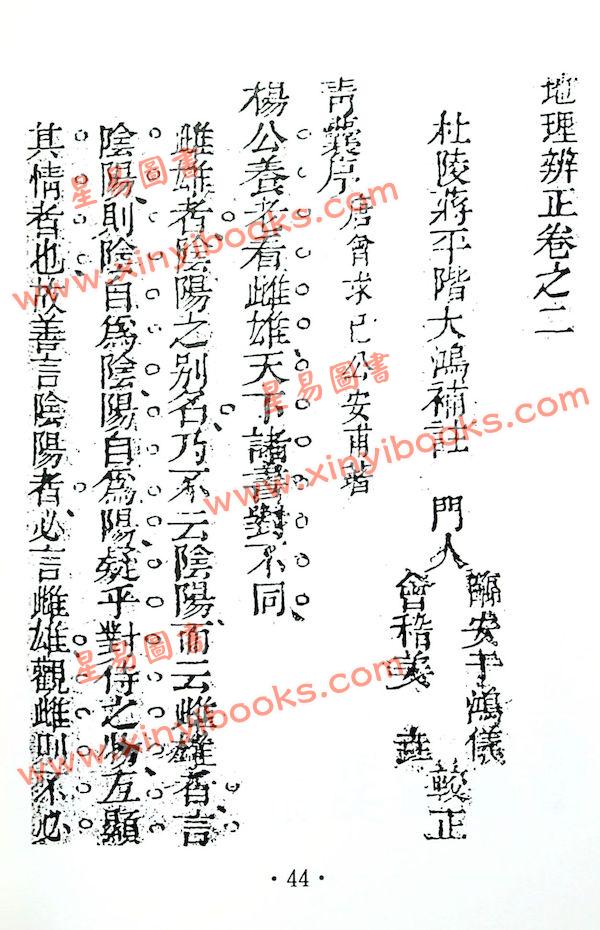 地理辨正卷之二
杜陵蔣平階大鴻補註 門人
臨安于鴻儀
會稽姜 垚
較正
青囊序 唐曾求己公安甫著
楊公養老看雌雄天下諸書對不同
雌雄者陰陽之別名乃不云陰陽而云雌雄者言
陰陽則陰自爲陰陽自爲陽疑乎對待之物互顯
其情者也故善言陰陽者必言雌雄觀雌則不必
・44・
星易圖書
www.xinyibooks.com
星易圖書
www.xinyibooks.com
星易圖書
www.xinyibooks.com